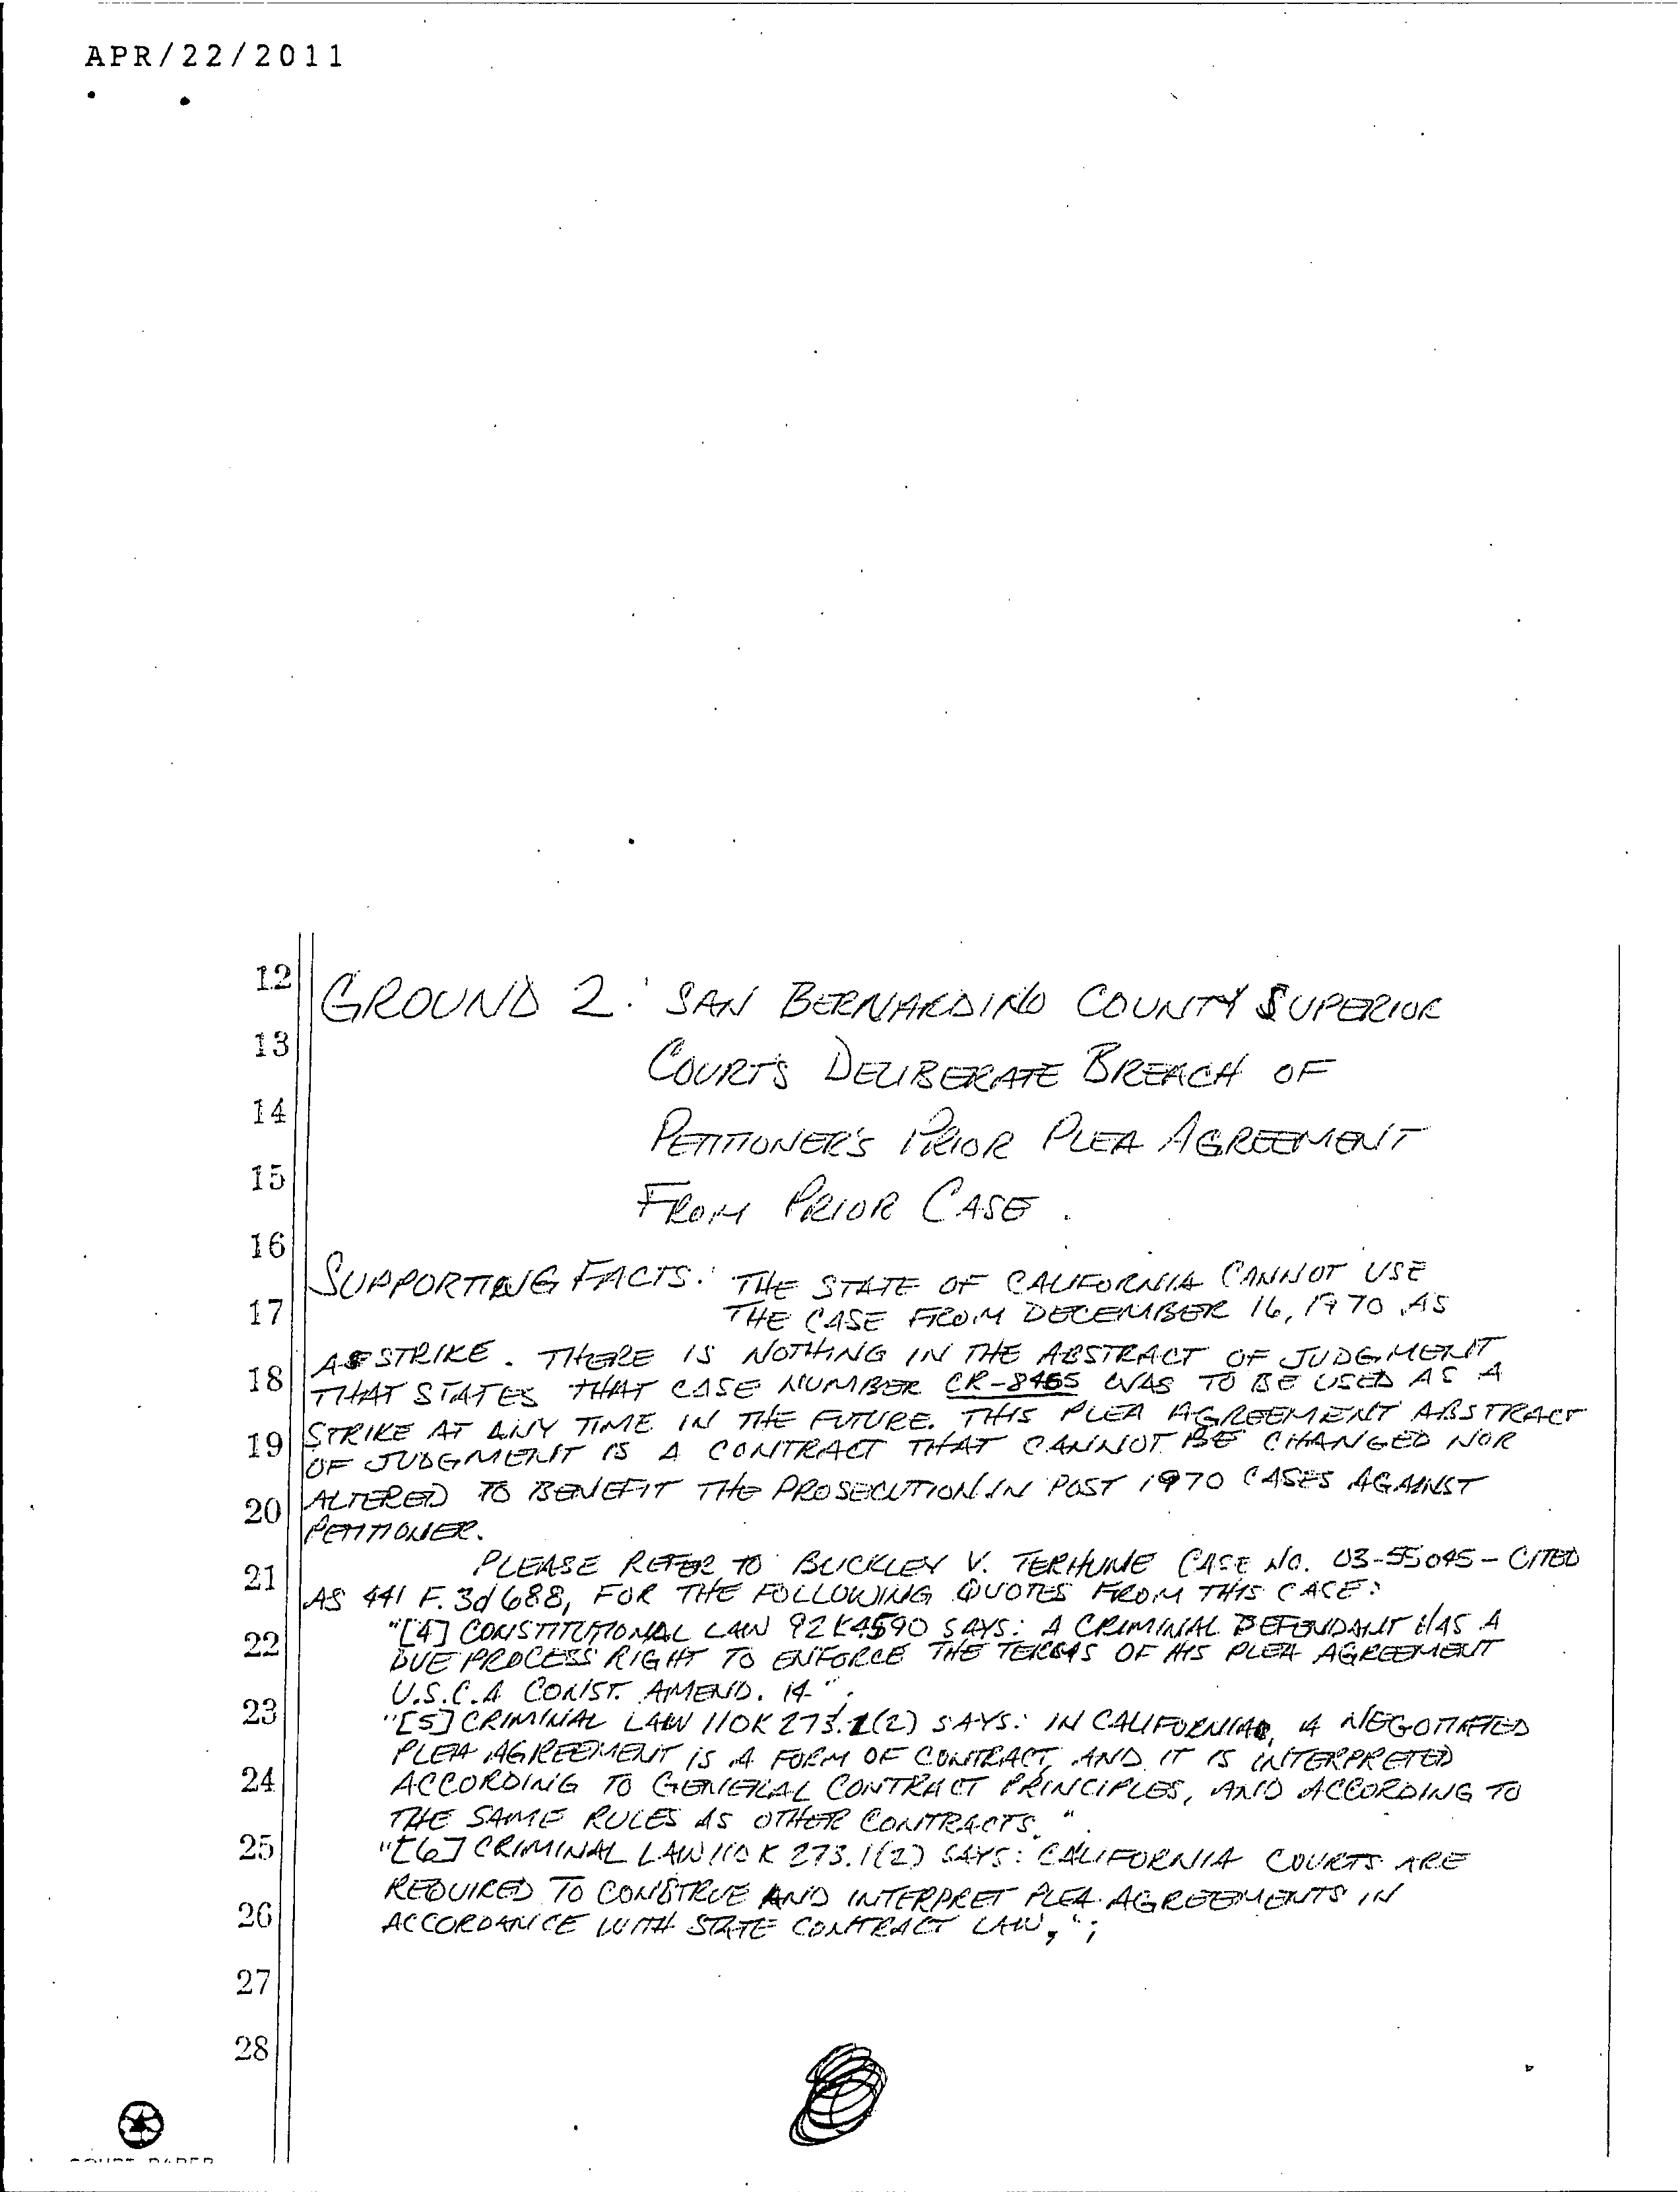 APR/22/2011
12
GROUND 2: SAN BERNARDINO COUNTY SUPERIOR
13
COURT'S DELIBERATE BREACH OF
14
PETITIONER'S PRIOR PLEA AGREEMENT
15
FROM PRIOR CASE.
16
SUPPORTING FACTS: THE STATE OF CALIFORNIA CANNOT USE
17
THE CASE FROM DECEMBER 16, 1970 AS
18
A STRIKE. THERE IS NOTHING IN THE ABSTRACT OF JUDGMENT
THAT STATES THAT CASE NUMBER CR-8465 WAS TO BE USED AS A
STRIKE AT ANY TIME IN THE FUTURE. THIS PLEA AGREEMENT ABSTRACT
19
OF JUDGMENT IS A CONTRACT THAT CANNOT BE CHANGED NOR
20
ALTERED TO BENEFIT THE PROSECUTION IN POST 1970 CASES AGAINST
PETITIONER.
PLEASE REFER TO BUCKLEY V. TERHUNE CASE NO. 03-55045 - CITED
21
AS 441 F. 3d 688, FOR THE FOLLOWING QUOTES FROM THIS CASE:
"[4] CONSTITUTIONAL LAW 92K4590 SAYS: A CRIMINAL DEFENDANT HAS A
22
DUE PROCESS RIGHT TO ENFORCE THE TERMS OF HIS PLEA AGREEMENT
U.S.C.A CONST. AMEND. 14".
23
"[5] CRIMINAL LAW 110K 273.1(2) SAYS: IN CALIFORNIA, A NEGOTIATED
PLEA AGREEMENT IS A FORM OF CONTRACT, AND IT IS INTERPRETED
24
ACCORDING TO GENERAL CONTRACT PRINCIPLES, AND ACCORDING TO
THE SAME RULES AS OTHER CONTRACTS."
25
"[6] CRIMINAL LAW 110K 273.1(2) SAYS: CALIFORNIA COURTS ARE
REQUIRED TO CONSTRUE AND INTERPRET PLEA AGREEMENTS IN
26
ACCORDANCE WITH STATE CONTRACT LAW,";
27
28